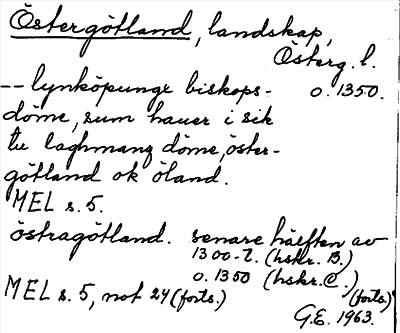 Östergötland, landskap,
Österg. l.
-- lynköpungx biskops- o. 1350.
döme, sum hauer i sik
tu laghmanz döme, öster-
götland ok öland.
MEL s. 5.
östragötland. senare hälften av
1300-t. (hskr. B.)
o. 1350 (hskr. C.)
MEL s. 5, not 24 (forts.) (forts.)
G.E. 1963.